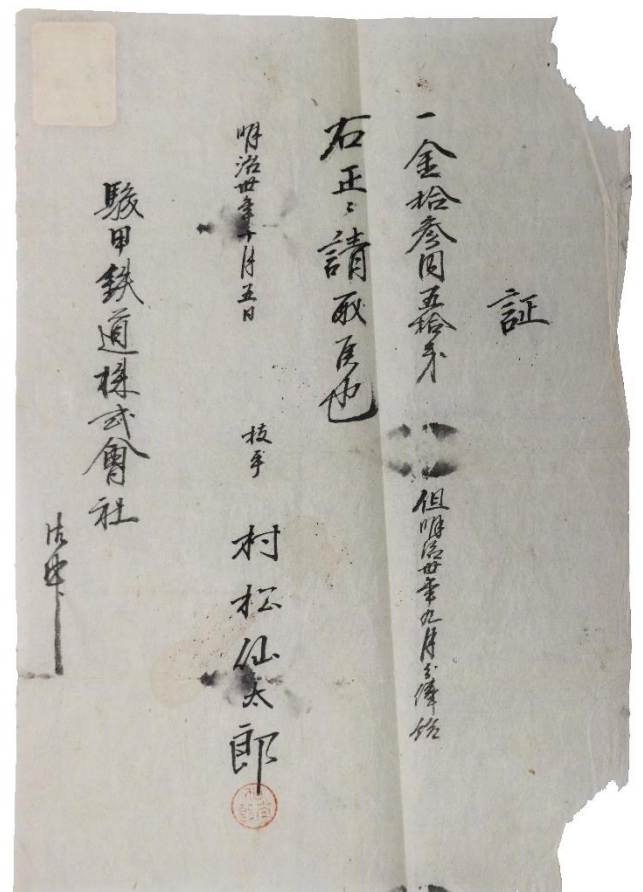 証
一金拾参円五拾銭
但明治丗年九月分俸給
右正ニ請取候也
明治丗年十月五日
技手 村松仙太郎
駿甲鉄道株式會社
御中